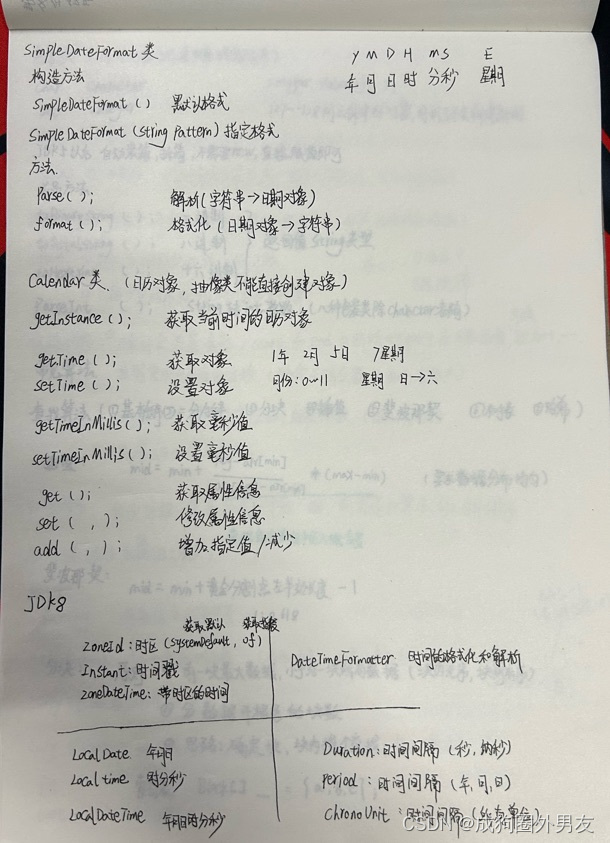 SimpleDateFormat 类
y M D H m S E
构造方法
年 月 日 时 分 秒 星期
SimpleDateFormat() 默认格式
SimpleDateFormat(String pattern) 指定格式
方法.
Parse(); 解析(字符串→日期对象)
format(); 格式化(日期对象→字符串)
Calendar 类. (日历对象, 抽像类不能直接创建对象)
getInstance(); 获取当前时间的日历对象
getTime(); 获取对象 1年 2月 5日 7星期
setTime(); 设置对象 月份:0~11 星期 日→六
getTimeInMillis(); 获取毫秒值
setTimeInMillis(); 设置毫秒值
get(); 获取属性信息
set( , ); 修改属性信息
add( , ); 增加指定值/减少
JDK8
获取默认 获取指定
ZoneId:时区(systemDefault, Of)
Instant:时间戳
ZoneDateTime:带时区的时间
DateTimeFormatter 时间的格式化和解析
LocalDate 年月日
Local time 时分秒
LocalDateTime 年月日时分秒
Duration:时间间隔(秒,纳秒)
Period:时间间隔(年,月,日)
ChronoUnit:时间间隔(所有单位)
CSDN @成狗圈外男友